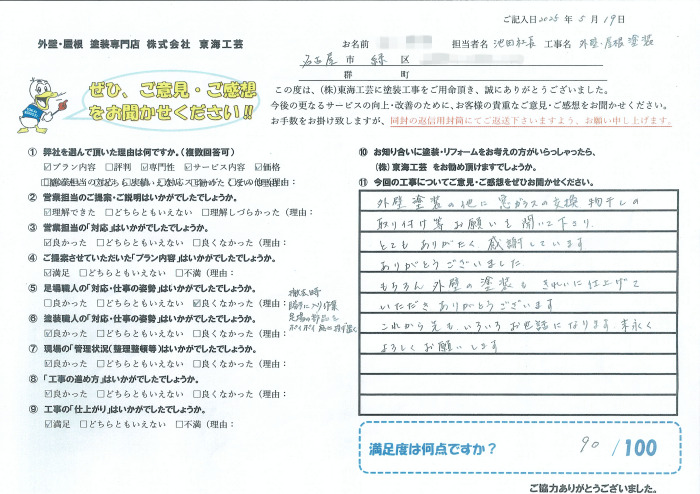 ご記入日2025年5月19日
外壁・屋根 塗装専門店 株式会社 東海工芸
お名前 担当者名 池田社長 工事名 外壁・屋根塗装
名古屋 市 緑 区
郡 町
ぜひ、ご意見・ご感想
をお聞かせください!!
この度は、(株)東海工芸に塗装工事をご用命頂き、誠にありがとうございました。
今後の更なるサービスの向上・改善のために、お客様の貴重なご意見・ご感想をお聞かせください。
お手数をお掛け致しますが、同封の返信用封筒にてご返送下さいますよう、お願い申し上げます。
① 弊社を選んで頂いた理由は何ですか。(複数回答可)
☑プラン内容 □評判 ☑専門性 ☑サービス内容 ☑価格
② 営業担当のご提案・ご説明はいかがでしたでしょうか。
☑理解できた □どちらともいえない □理解しづらかった (理由:
③ 営業担当の「対応」はいかがでしたでしょうか。
☑良かった □どちらともいえない □良くなかった (理由:
④ ご提案させていただいた「プラン内容」はいかがでしたでしょうか。
☑満足 □どちらともいえない □不満 (理由:
⑤ 足場職人の「対応・仕事の姿勢」はいかがでしたでしょうか。
□良かった □どちらともいえない ☑良くなかった (理由:
撤去時
勝手に入り作業
足場の部品を
⑥ 塗装職人の「対応・仕事の姿勢」はいかがでしたでしょうか。
☑良かった □どちらともいえない □良くなかった (理由:
⑦ 現場の「管理状況(整理整頓等)はいかがでしたでしょうか。
☑良かった □どちらともいえない □良くなかった (理由:
⑧ 「工事の進め方」はいかがでしたでしょうか。
☑良かった □どちらともいえない □良くなかった (理由:
⑨ 工事の「仕上がり」はいかがでしたでしょうか。
☑満足 □どちらともいえない □不満 (理由:
⑩ お知り合いに塗装・リフォームをお考えの方がいらっしゃったら、
(株)東海工芸 をお勧め頂けますでしょうか。
⑪ 今回の工事についてご意見・ご感想をぜひお聞かせください。
外壁塗装の他に窓ガラスの交換 物干しの
取り付け等お願いも聞いて下さり、
とてもありがたく感謝しています
ありがとうございました
もちろん外壁の塗装もきれいに仕上げて
いただきありがとうございます
これから先も、いろいろお世話になります 末永く
よろしくお願いします
満足度は何点ですか? 90 /100
ご協力ありがとうございました。